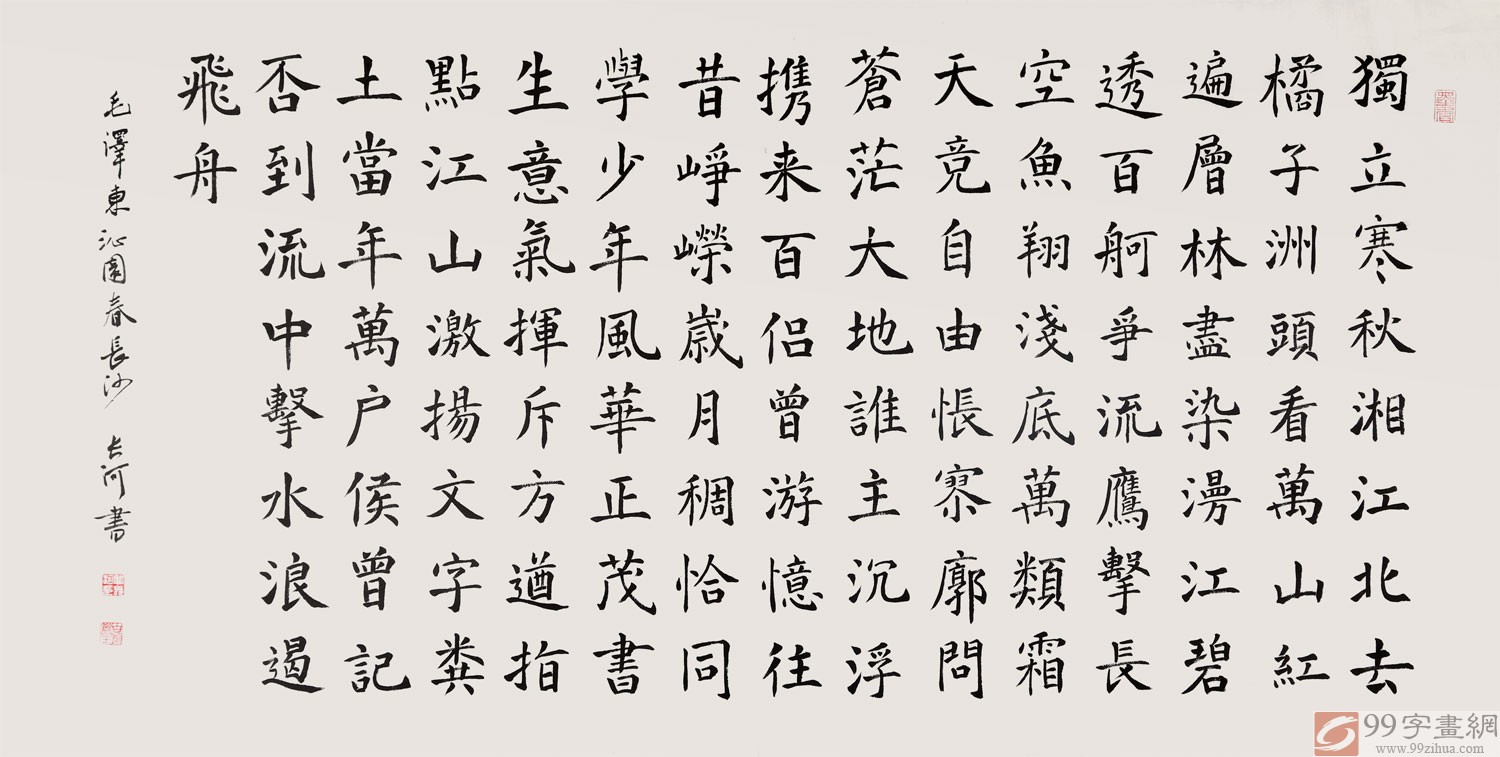 獨立寒秋湘江北去
橘子洲頭看萬山紅
遍層林盡染漫江碧
透百舸爭流鷹擊長
空魚翔淺底萬類霜
天竞自由悵寥廓問
蒼茫大地誰主沉浮
携来百侣曾游憶往
昔崢嶸歲月稠恰同
學少年風華正茂書
生意氣揮斥方遒指
點江山激揚文字糞
土當年萬户侯曾記
否到流中擊水浪遏
飛舟
毛澤東沁園春長沙 长河書
99字畫網
www.99zihua.com